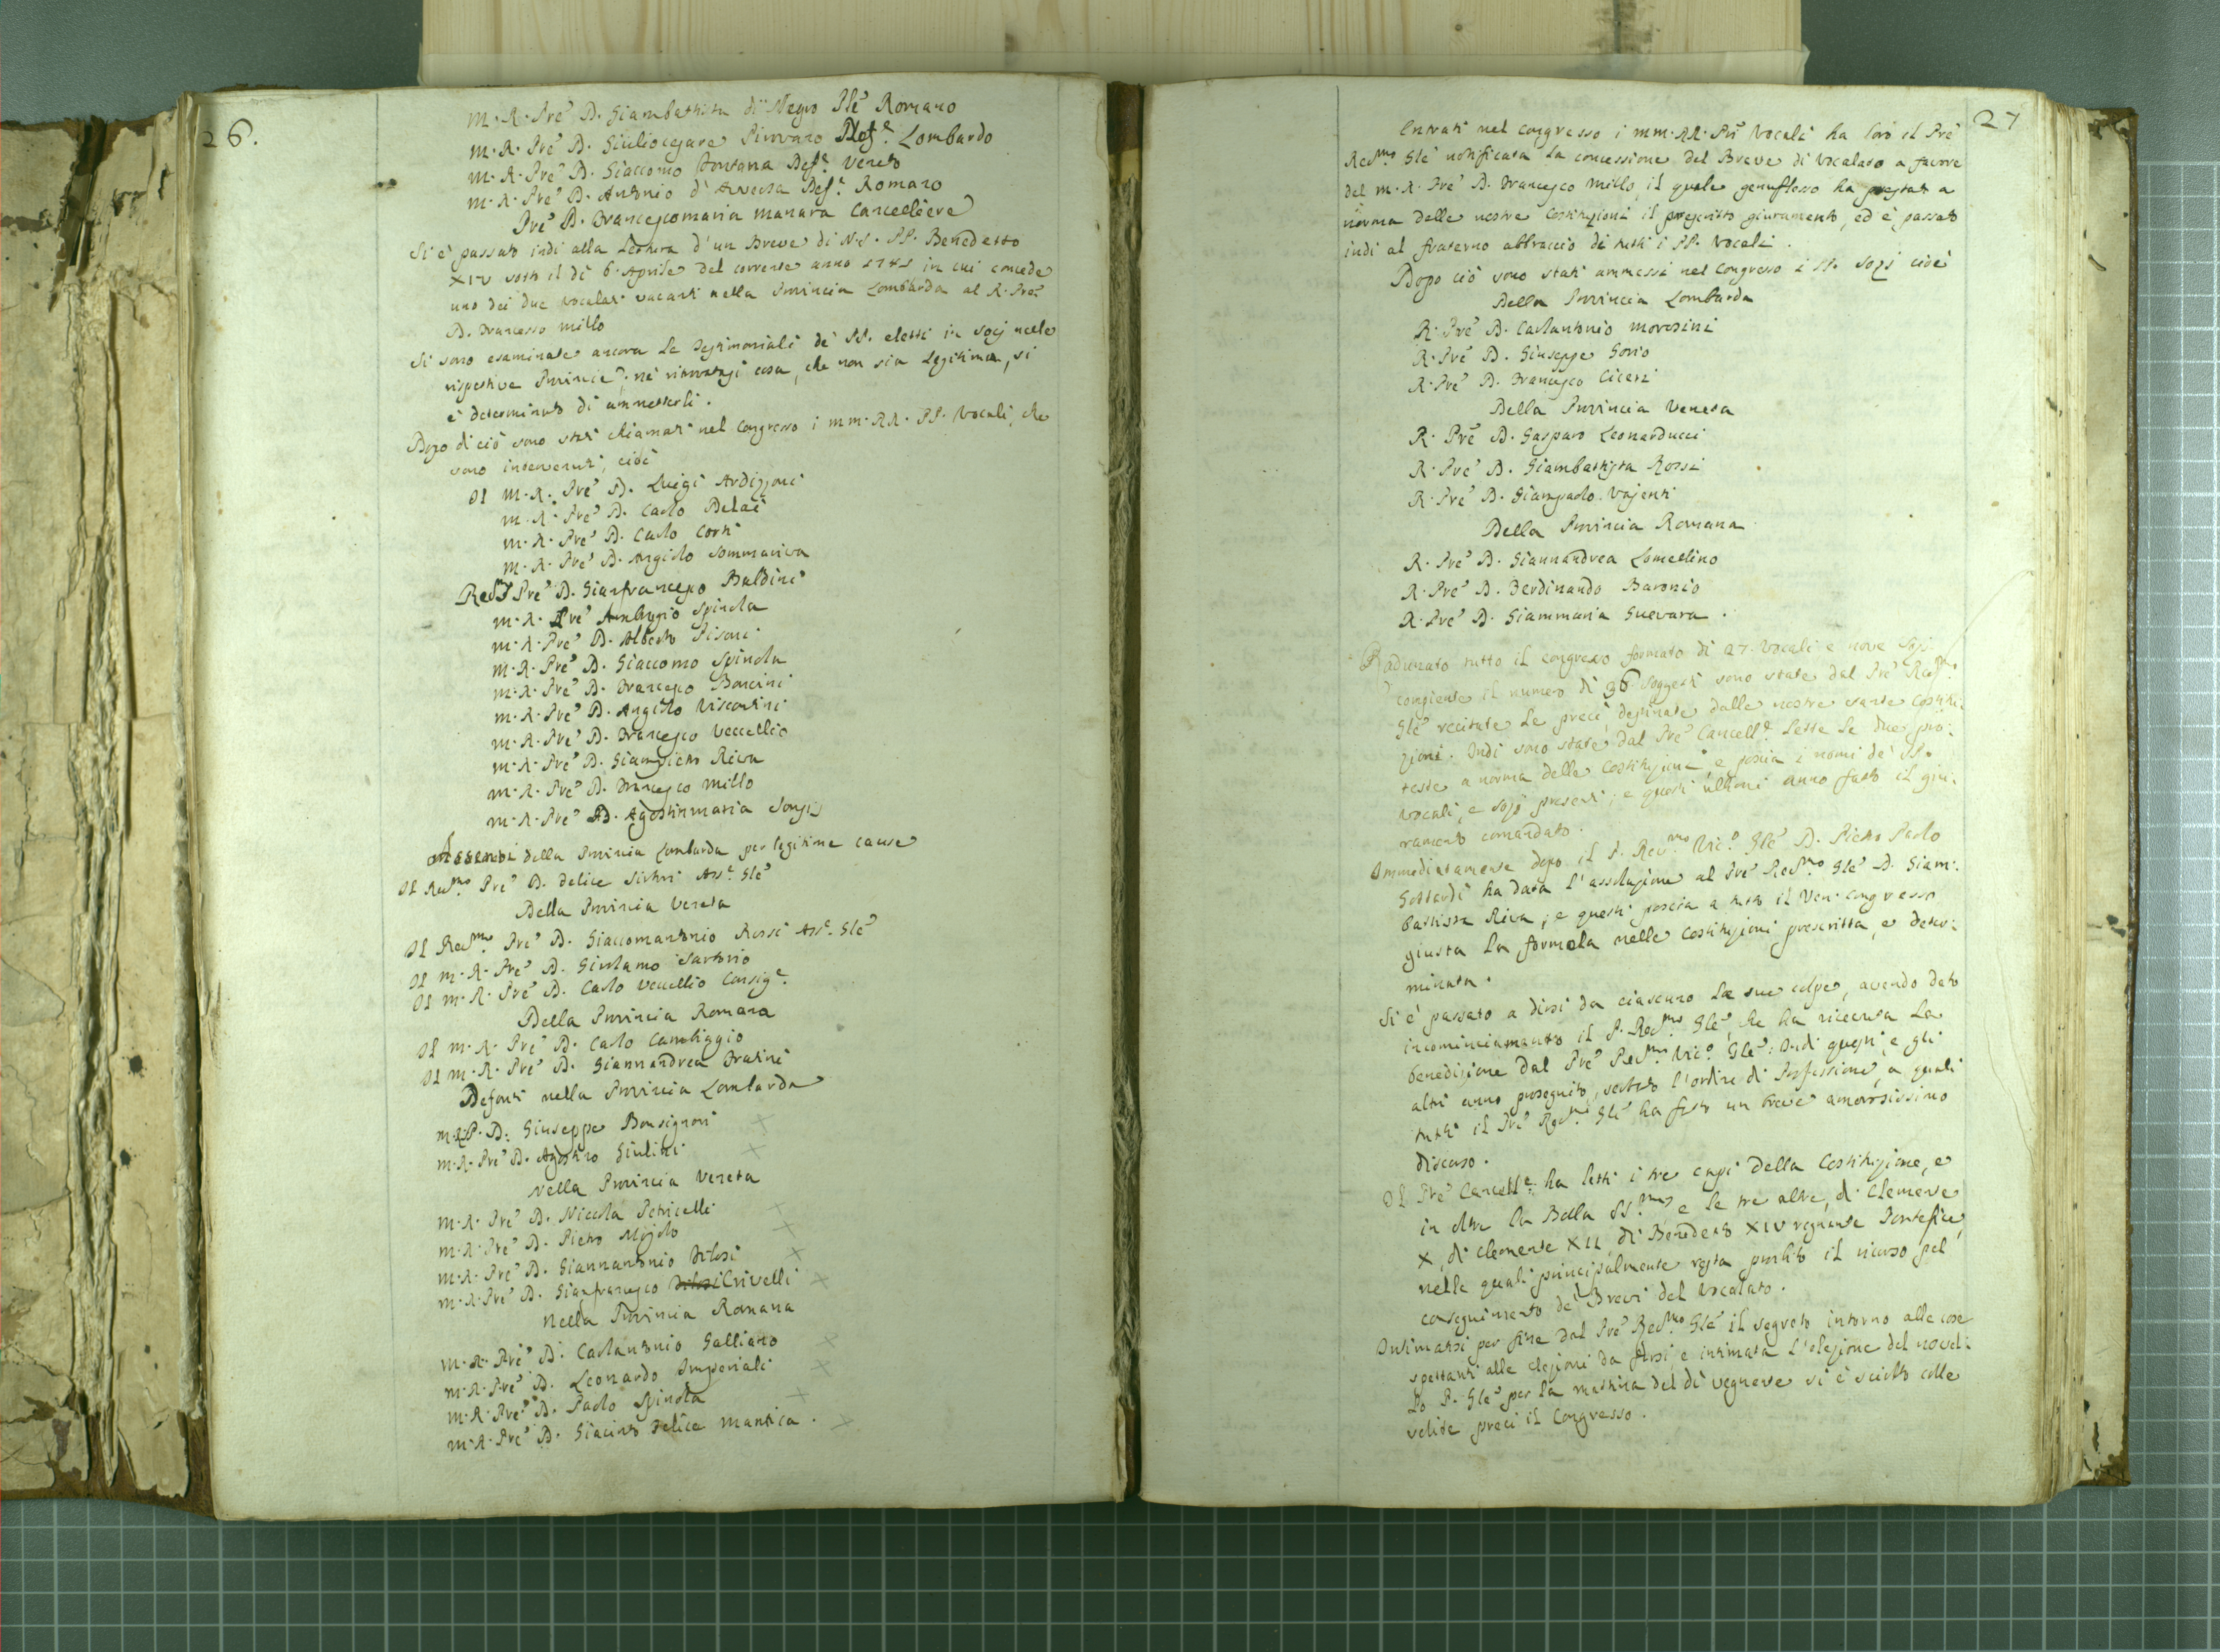 26.
M. R. Pre' D. Giambattista di Negro Ple' Romano
M. R. Pre' D. Giuliocesare Pirovano Def.e Lombardo
M. R. Pre' D. Giaccomo Fontana Def.e Veneto
M. R. Pre' D. Antonio d'Aversa Def.e Romano
Pre' D. Francescomaria Manara Cancelliere
Si è passato indi alla Lettura d'un Breve di N. S. PP. Benedetto
XIV sotto il dì 6. Aprile del corrente anno in cui concede
uno dei due vocalati vacanti nella Provincia Lombarda al R. Pre'
D. Francesco Millo
Si sono esaminate ancora le Testimoniali de' PP. eletti in Socj nelle
rispettive Provincie; nè ritrovatasi cosa, che non sia Legitima, si
è determinato di ammetterli.
Dopo di ciò sono stati chiamati nel Congresso i MM. RR. PP. Vocali, che
sono intervenuti, cioè
Il M. R. Pre' D. Luigi Ardizzoni
M. R. Pre' D. Carlo Belai
M. R. Pre' D. Carlo Corti
M. R. Pre' D. Angiolo Sommariva
Pre' D. Gianfrancesco Baldini
M. R. Pre' Ambrogio Spinola
M. R. Pre' D. Alberto Pisani
M. R. Pre' D. Giaccomo Spinola
M. R. Pre' D. Francesco Boncini
M. R. Pre' D. Angiolo Viscontini
M. R. Pre' D. Francesco Veccellio
M. R. Pre' D. Giampietro Riva
M. R. Pre' D. Francesco Millo
M. R. Pre' D. Agostinmaria
Assenti della Provincia Lombarda per legitime cause
Il Rev.mo Pre' D. Felice Ass.e Gle'
Della Provincia Veneta
Il Rev.mo Pre' D. Giaccomantonio Rossi Ass.e Gle'
Il M. R. Pre' D. Girolamo Sartorio
Il M. R. Pre' D. Carlo Veccellio Consig.e
Della Provincia Romana
Il M. R. Pre' D. Carlo Cambiaggio
Il M. R. Pre' D. Giannandrea
Defonti nella Provincia Lombarda
M. R. P. D. Giuseppe Bonsignori
M. R. Pre' D. Agostino Giulini
Nella Provincia Veneta
M. R. Pre' D. Niccola Petricelli
M. R. Pre' D. Pietro
M. R. Pre' D. Giannantonio Filosi
M. R. Pre' D. Gianfrancesco Crivelli
Nella Provincia Romana
M. R. Pre' D. Carlantonio Galliano
M. R. Pre' D. Leonardo Imperiali
M. R. Pre' D. Paolo Spinola
M. R. Pre' D. Giacinto Felice Mantica.
27
Entrati nel Congresso i MM. RR. Pri Vocali ha loro il Pre'
Rev.mo Gle' notificata la concessione del Breve di Vocalato a favore
del M. R. Pre' D. Francesco Millo, il quale genuflesso ha prestato a
norma delle nostre Costituzioni il prescritto giuramento, ed è passato
indi al fraterno abbraccio di tutti i PP. Vocali.
Dopo ciò sono stati ammessi nel Congresso i PP. Sozj cioè
Della Provincia Lombarda
R. Pre' D. Carlantonio Morosini
R. Pre' D. Giuseppe Sorio
R. Pre' D. Francesco Ciceri
Della Provincia Veneta
R. Pre' D. Gasparo Leonarducci
R. Pre' D. Giambattista Rossi
R. Pre' D. Giampaolo Vajenti
Della Provincia Romana
R. Pre' D. Giannandrea Lomellino
R. Pre' D. Ferdinando Baronio
R. Pre' D. Giammaria Guevara.
Radunato tutto il congresso formato di 27. Vocali e nove Sozj
compiente il numero di 36 soggetti sono state dal Pre' Rev.mo
Gle' recitate le preci destinate dalle nostre sante Costitu:
zioni. Indi sono state dal Pre' Cancell.e lette le due pro:
teste a norma delle Costituzioni e poscia i nomi de' PP.
Vocali, e Sozj presenti; e questi ultimi anno fatto il giu:
ramento comandato.
Immediatamente dopo il P. Rev.mo Vic.o Gle' D. Pietro Paolo
Gottardi ha data l'assoluzione al Pre' Rev.mo Gle' D. Giam:
battista Riva; e questi poscia a tutto il Ven. Congresso
giusta la formola nelle Costituzioni prescritta, e deter:
minata.
Si è passato a dirsi da ciascuno le sue colpe, avendo dato
incominciamento il P. Rev.mo Gle', che ha ricevuta la
benedizione dal Pre' Rev.mo Vic.o Gle'. Indi questi, e gli
altri anno proseguito, serbato l'ordine di Professione, a quali
tutti il Pre' Rev.mo Gle' ha fatto un breve amorosissimo
discorso.
Il Pre' Cancell.e ha letti i tre capi della Costituzione, e
in oltre la Bolla SS.mus e le tre altre, di Clemente
X, di Clemente XII, di Benedetto XIV regnante Pontefice,
nelle quali principalmente resta proibito il ricorso pel
conseguimento de' Brevi del Vocalato.
Intimatosi per fine dal Pre' Rev.mo Gle' il segreto intorno alle cose
spettanti alle elezioni da farsi, e intimata l'elezione del novel:
lo P. Gle' per la mattina del dì vegnente si è sciolto colle
solite preci il Congresso.